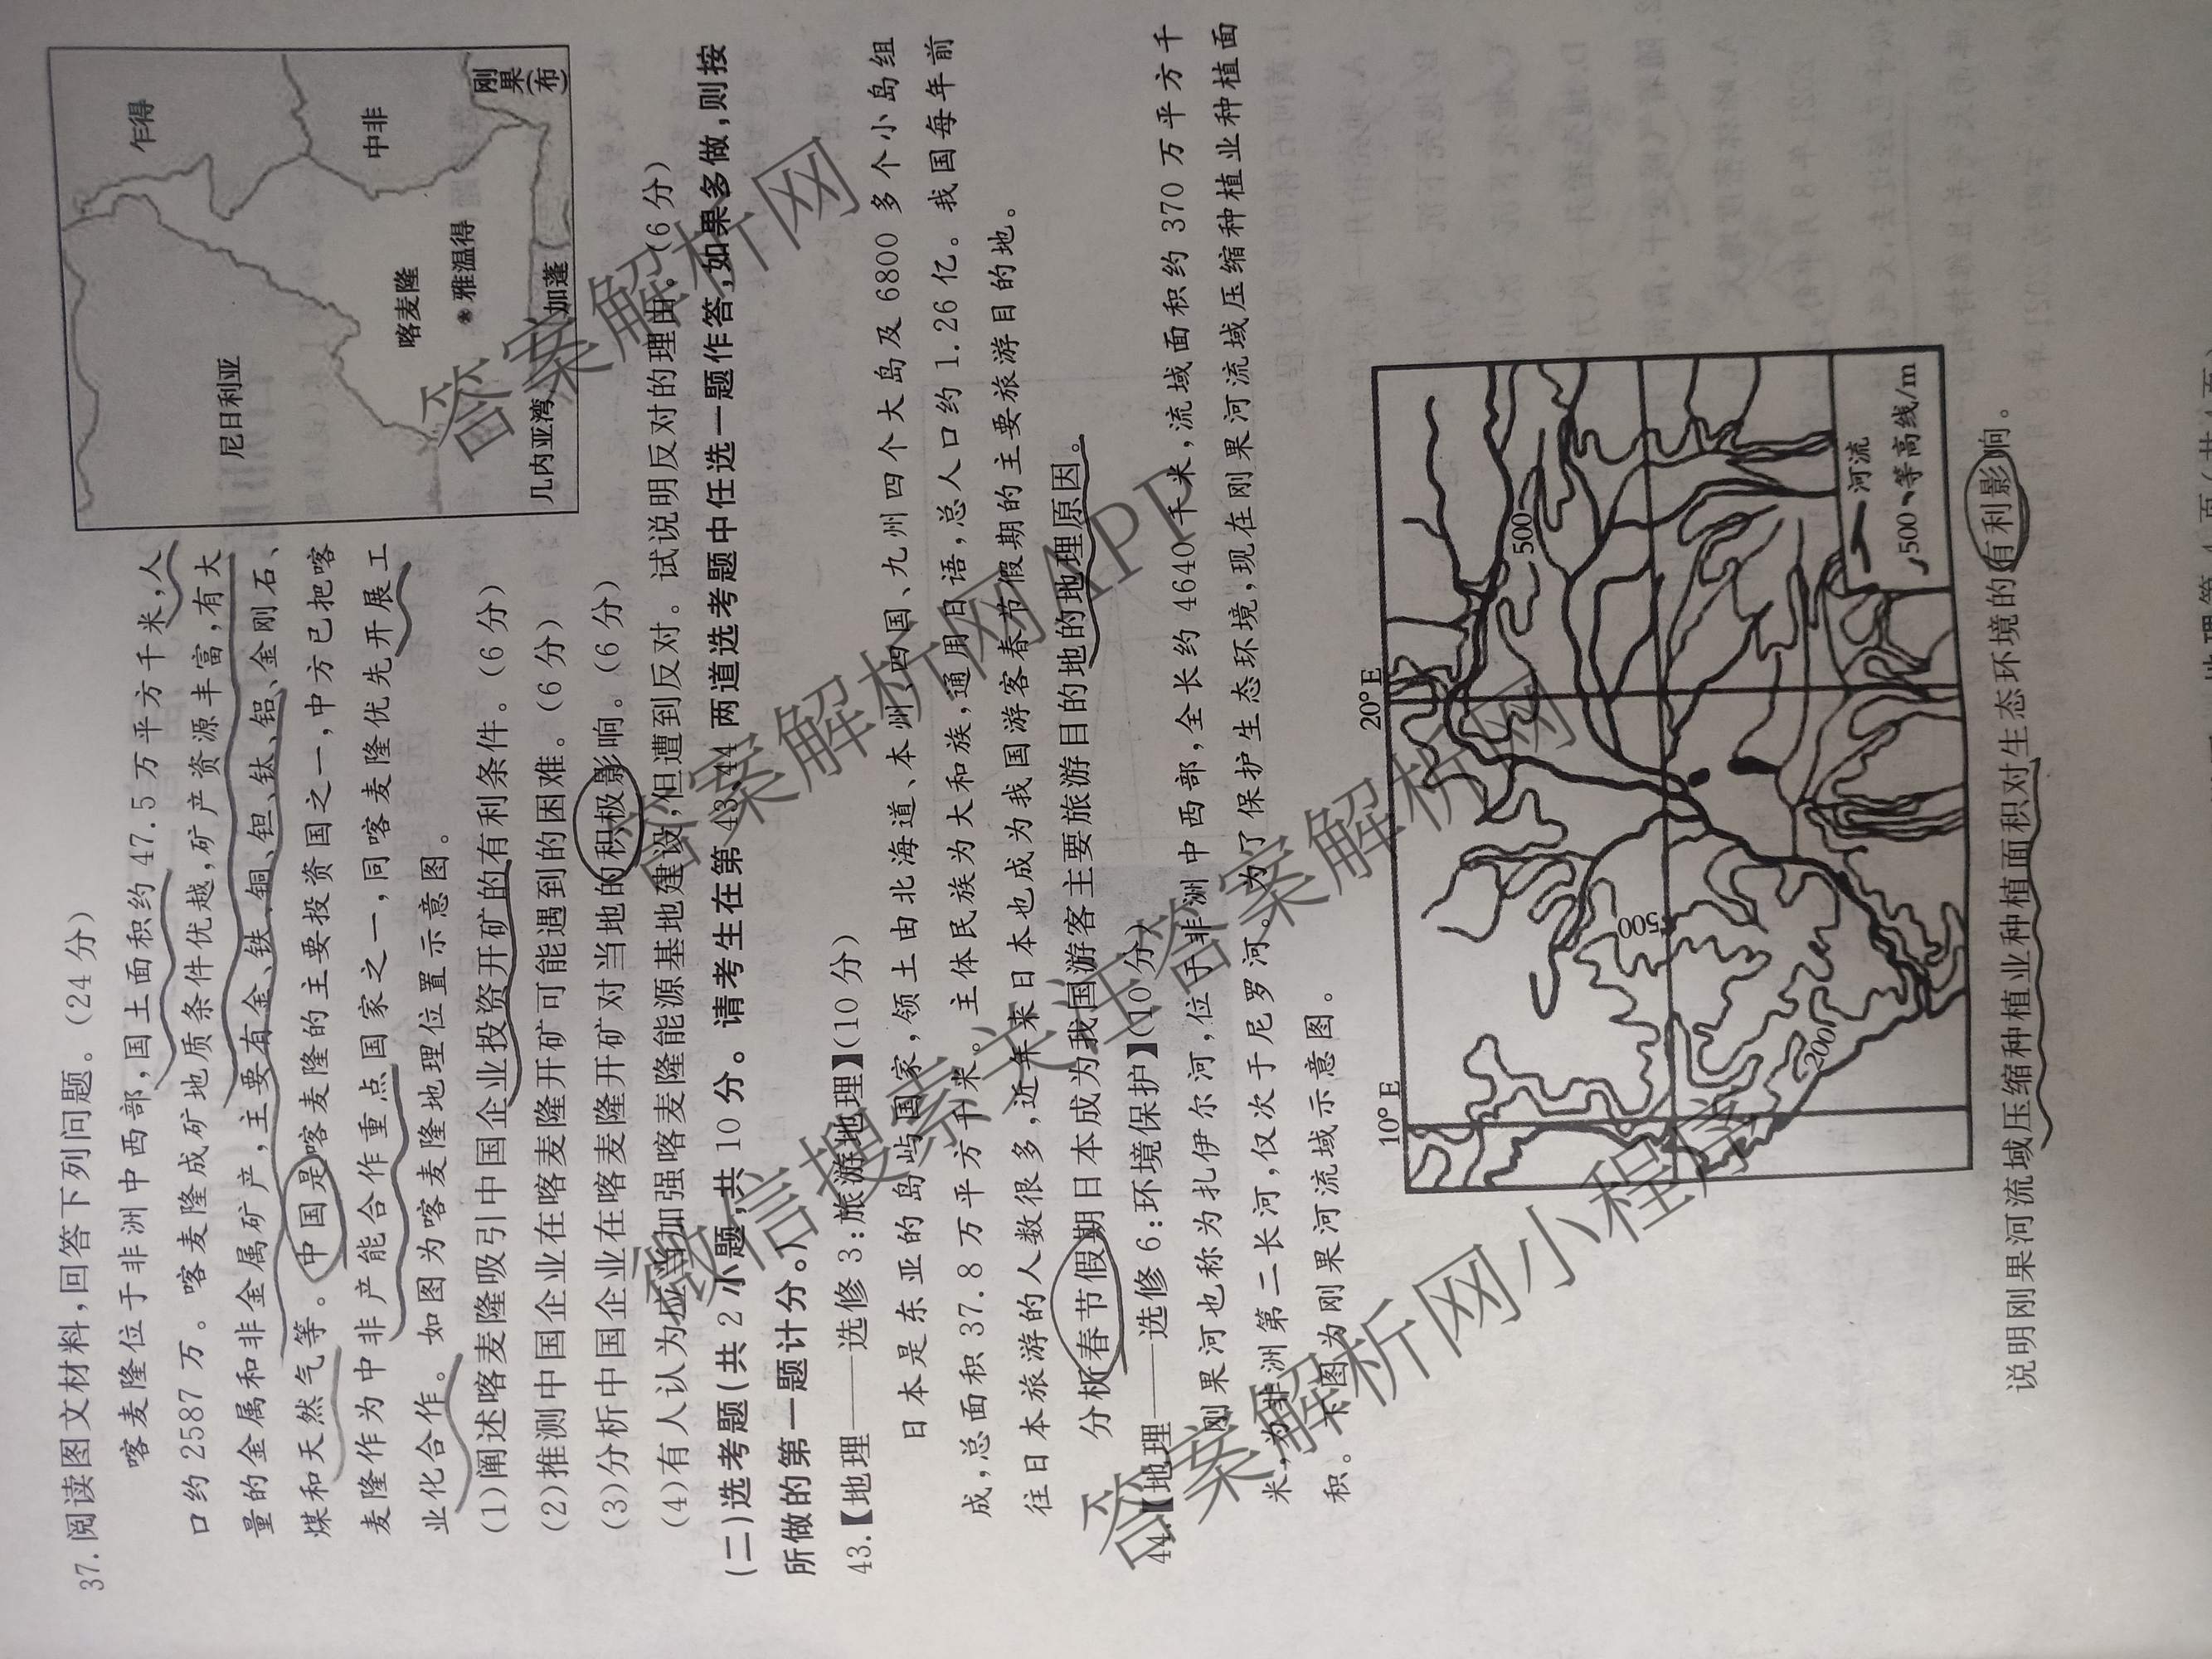 37.阅读图文材料,回答下列问题。(24分)
喀麦隆位于非洲中西部,国土面积约47.5万平方千米,人
口约2587万。喀麦隆成矿地质条件优越,矿产资源丰富,有大
量的金属和非金属矿产,主要有金、铁、铜、钽、钛、铝、金刚石、
煤和天然气等。中国是喀麦隆的主要投资国之一,中方已把喀
麦隆作为中非产能合作重点国家之一,同喀麦隆优先开展工
业化合作。如图为喀麦隆地理位置示意图。
乍得
尼日利亚
中非
喀麦隆
雅温得
几内亚湾
加蓬
刚果(布)
(1)阐述喀麦隆吸引中国企业投资开矿的有利条件。(6分)
(2)推测中国企业在喀麦隆开矿可能遇到的困难。(6分)
(3)分析中国企业在喀麦隆开矿对当地的积极影响。(6分)
(4)有人认为应当加强喀麦隆能源基地建设,但遭到反对。试说明反对的理由。(6分)
(二)选考题(共2小题,共10分。请考生在第43、44两道选考题中任选一题作答,如果多做,则按
所做的第一题计分。)
43.【地理——选修3:旅游地理】(10分)
日本是东亚的岛屿国家,领土由北海道、本州、四国、九州四个大岛及6800多个小岛组
成,总面积37.8万平方千米。主体民族为大和族,通用日语,总人口约1.26亿。我国每年前
往日本旅游的人数很多,近年来日本也成为我国游客春节假期的主要旅游目的地。
分析春节假期日本成为我国游客主要旅游目的地的地理原因。
44.【地理——选修6:环境保护】(10分)
刚果河也称为扎伊尔河,位于非洲中西部,全长约4640千米,流域面积约370万平方千
米,为非洲第二长河,仅次于尼罗河。为了保护生态环境,现在刚果河流域压缩种植业种植面
积。下图为刚果河流域示意图。
10°E
20°E
500
500
200
河流
500 等高线/m
说明刚果河流域压缩种植业种植面积对生态环境的有利影响。
答案解析网
答案解析网APP
微信搜索关注答案解析网
答案解析网小程序